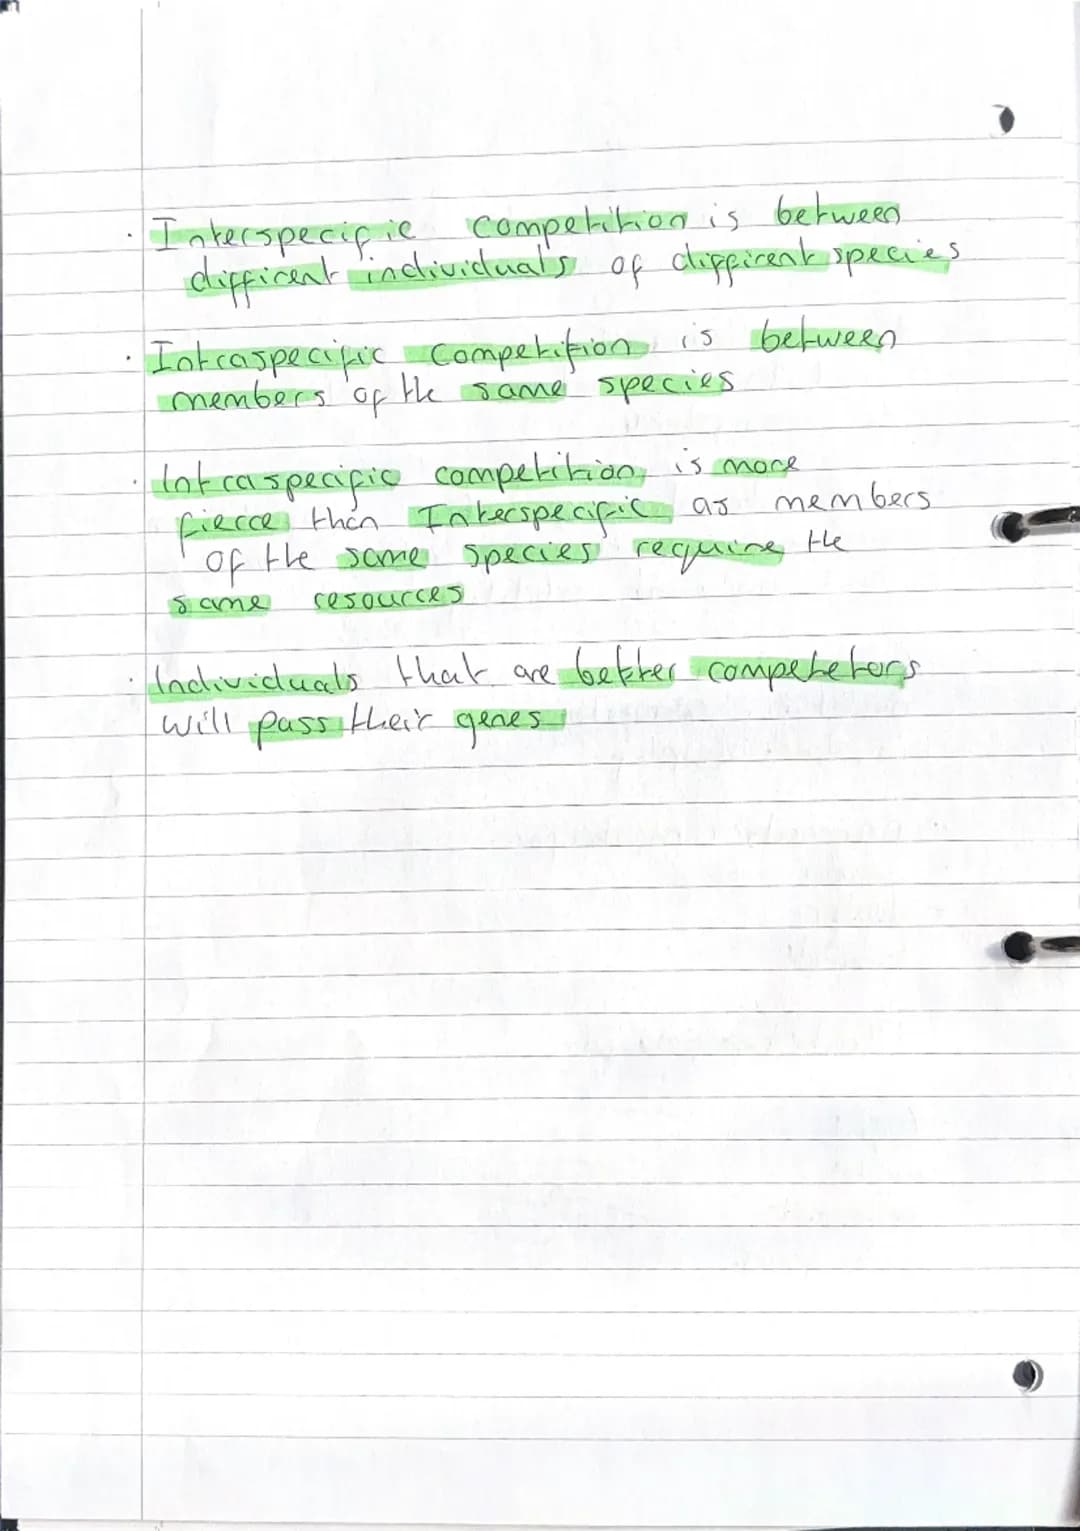 · Interspecific competition is between
different individuals of different species
· Intraspecific competition is between
members of the same species
· Intraspecific competition is more
fierce than Interspecific as members
of the same species require the
same resources
· Individuals that are better competetors
will pass their genes